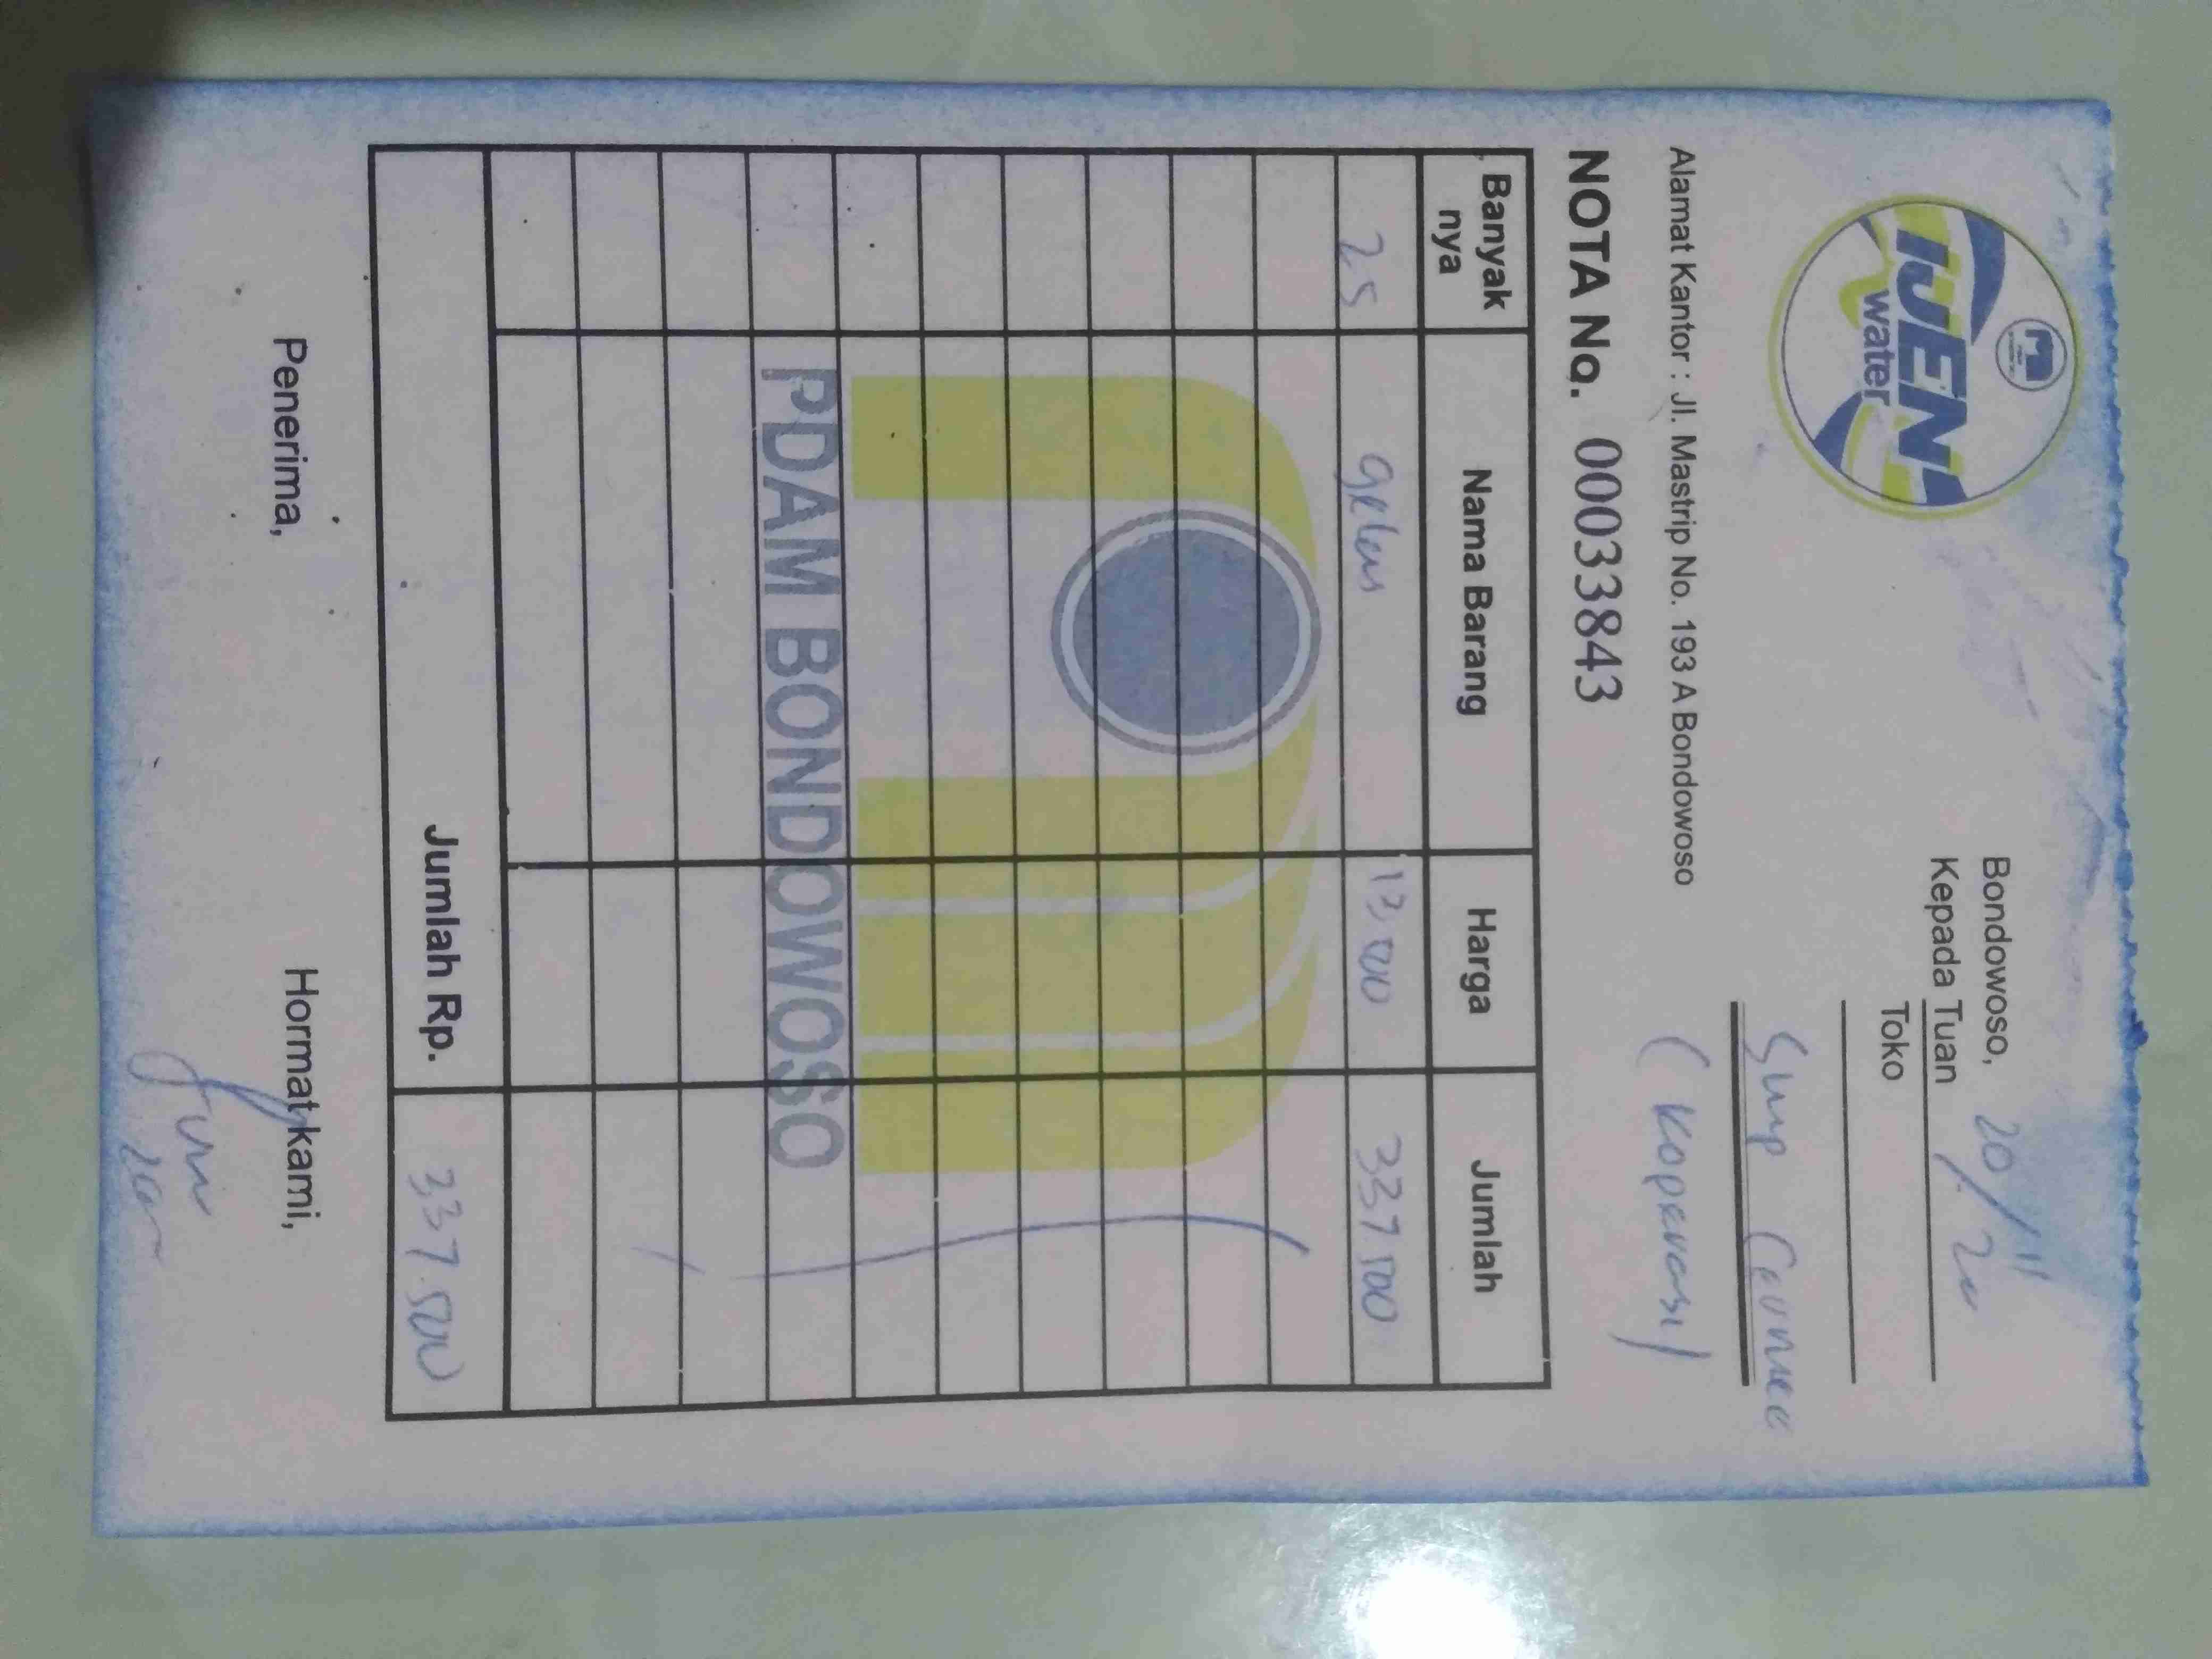 IJEN
water
Bondowoso, 20/11 20
Kepada Tuan
Toko
Smp
(Koperasi)
Alamat Kantor : Jl. Mastrip No. 193 A Bondowoso
NOTA No. 00033843
Banyak nya Nama Barang Harga Jumlah
25 gelas 13,500 337500
PDAM BONDOWOSO
Jumlah Rp. 337.500
Penerima, Hormat kami,